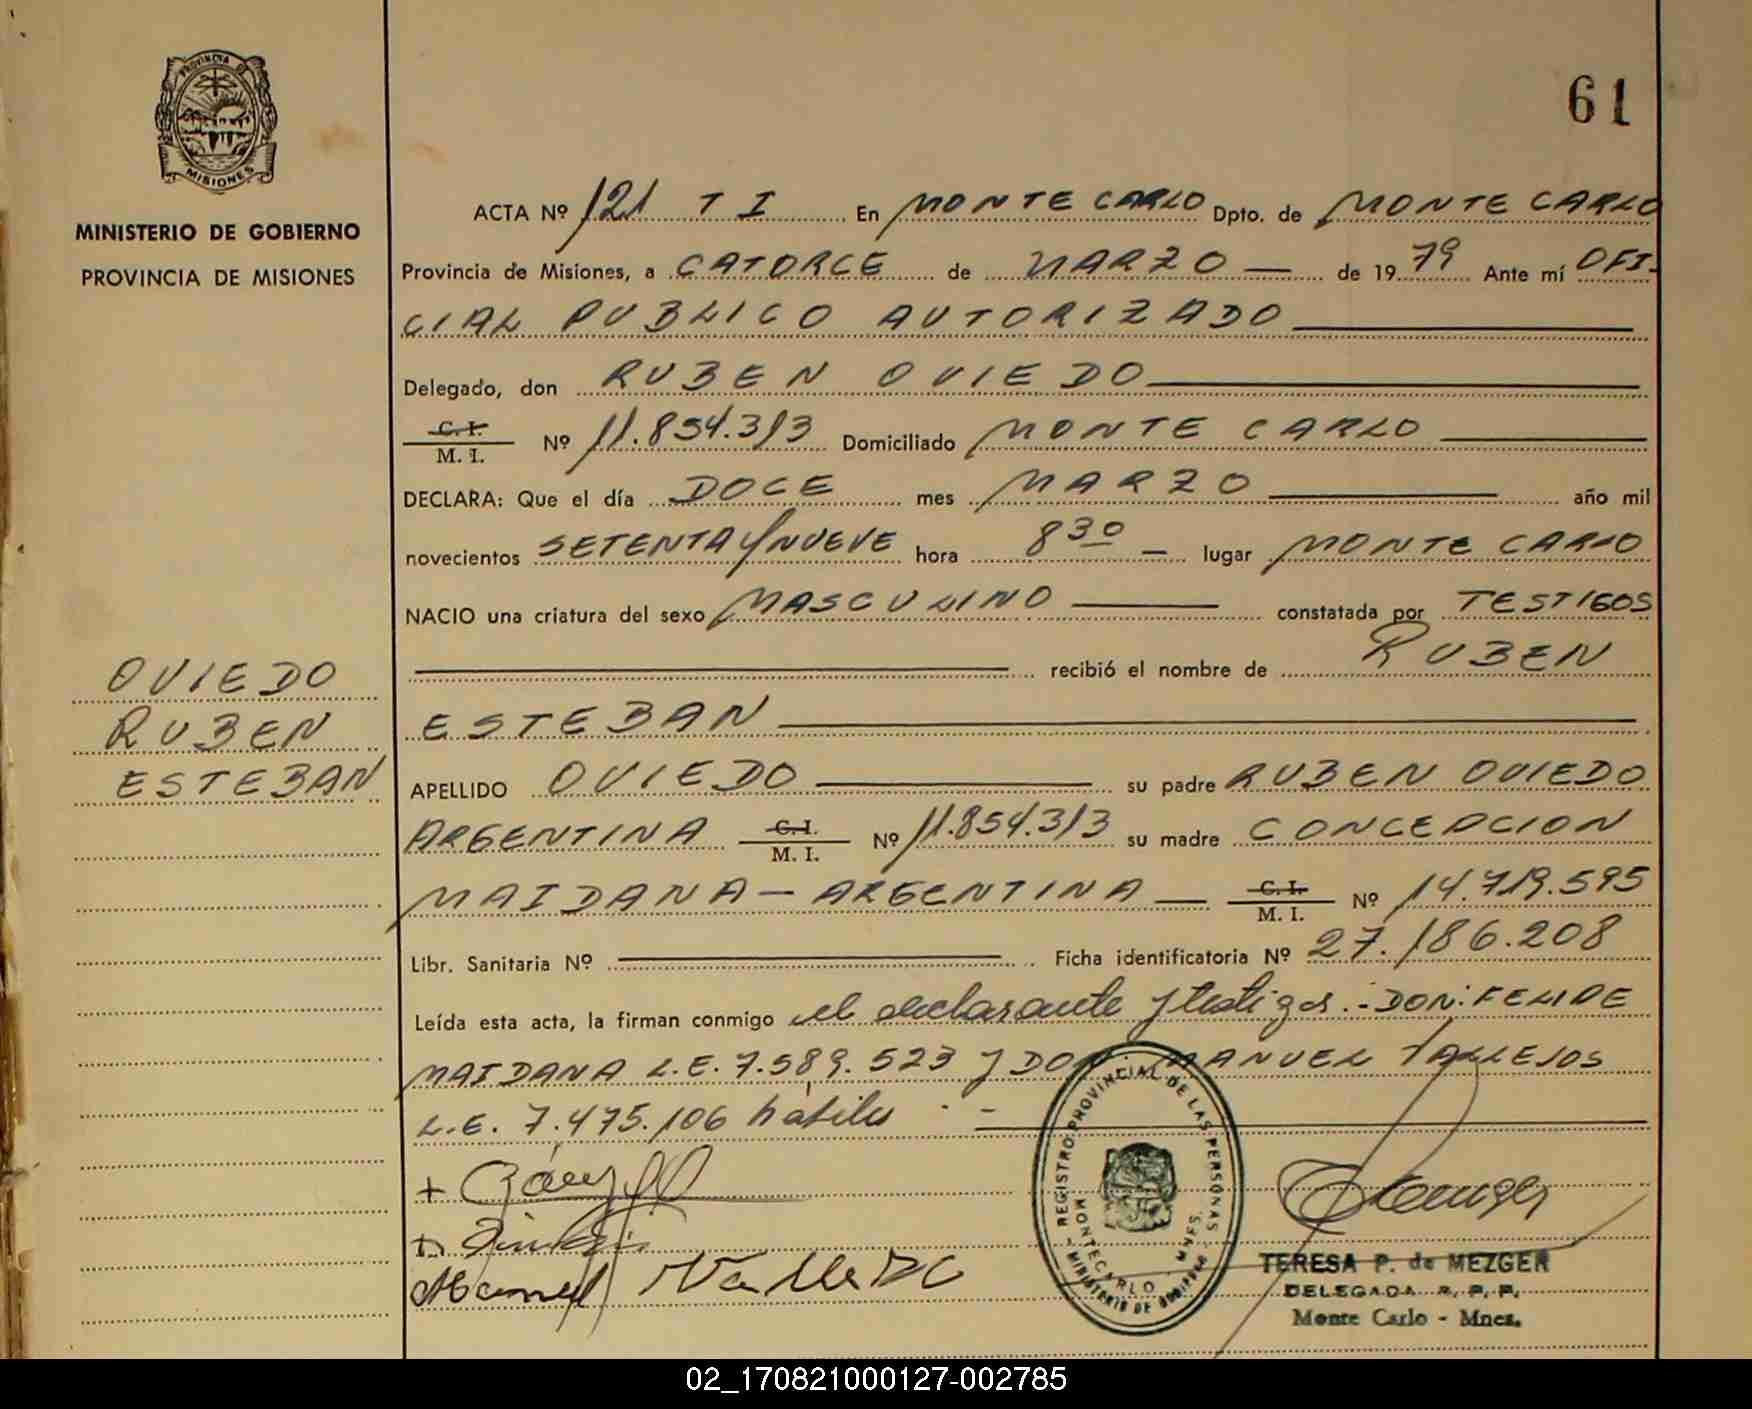 61
PROVINCIA DE
MISIONES
MINISTERIO DE GOBIERNO
PROVINCIA DE MISIONES
ACTA Nº 121 T I En MONTE CARLO Dpto. de MONTE CARLO
Provincia de Misiones, a CATORCE de MARZO — de 19 79 Ante mí OFI-
CIAL PUBLICO AUTORIZADO
Delegado, don RUBEN OVIEDO
C. I.
M. I. Nº 11.854.313 Domiciliado MONTE CARLO
DECLARA: Que el día DOCE mes MARZO año mil
novecientos SETENTA y NUEVE hora 8 30 — lugar MONTE CARLO
NACIO una criatura del sexo MASCULINO constatada por TESTIGOS
recibió el nombre de RUBEN
ESTEBAN
OVIEDO
RUBEN
ESTEBAN
APELLIDO OVIEDO su padre RUBEN OVIEDO
ARGENTINA C. I. M. I. Nº 11.854.313 su madre CONCEPCION
MAIDANA — ARGENTINA — C. I. M. I. Nº 14.719.595
Libr. Sanitaria Nº Ficha identificatoria Nº 27.186.208
Leída esta acta, la firman conmigo el declarante y testigos.- DON: FELIPE
MAIDANA L.E. 7.589.523 y DON MANUEL VALLEJOS
L.E. 7.475.106 hábiles
REGISTRO PROVINCIAL DE LAS PERSONAS
MONTECARLO - MNES.
MINISTERIO DE GOBIERNO
Manuel Vallejo
TERESA P. de MEZGER
DELEGADA R. P. P.
Monte Carlo - Mnes.
02_170821000127-002785